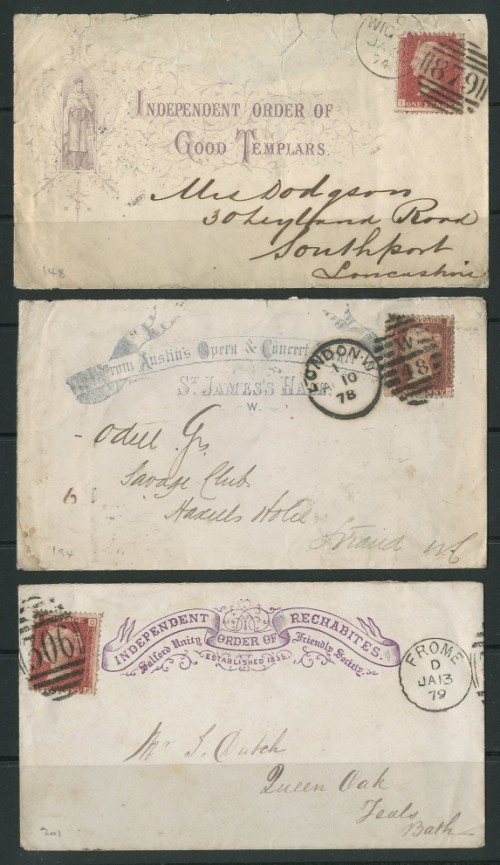 WIG
JA
74
879
ONE PENNY
INDEPENDENT ORDER OF
GOOD TEMPLARS.
Mrs Dodgson
30 Leyland Road
Southport
Lancashire
148
From Austin's Opera & Concert
ST. JAMES'S HALL
W.
LONDON·W
10
78
W
48
Odell Esq.
Savage Club
Haxells Hotel
Strand WC
6
194
306
INDEPENDENT ORDER OF RECHABITES.
Salford Unity Friendly Society.
ESTABLISHED 1835.
FROME
D
JA13
79
Mr
Queen Oak
Bath